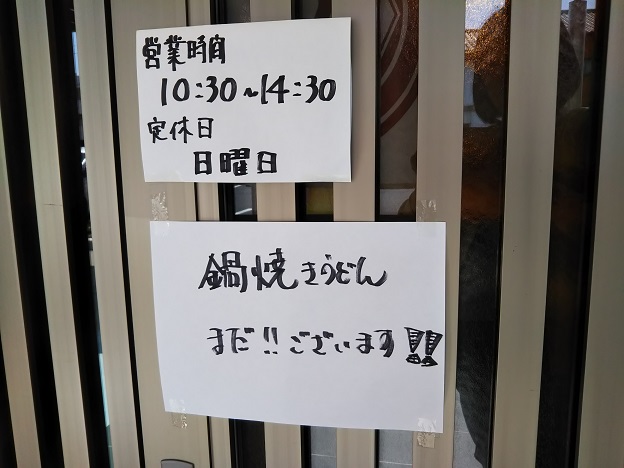 営業時間
10:30~14:30
定休日
日曜日
鍋焼きうどん
まだ!!ございます!!